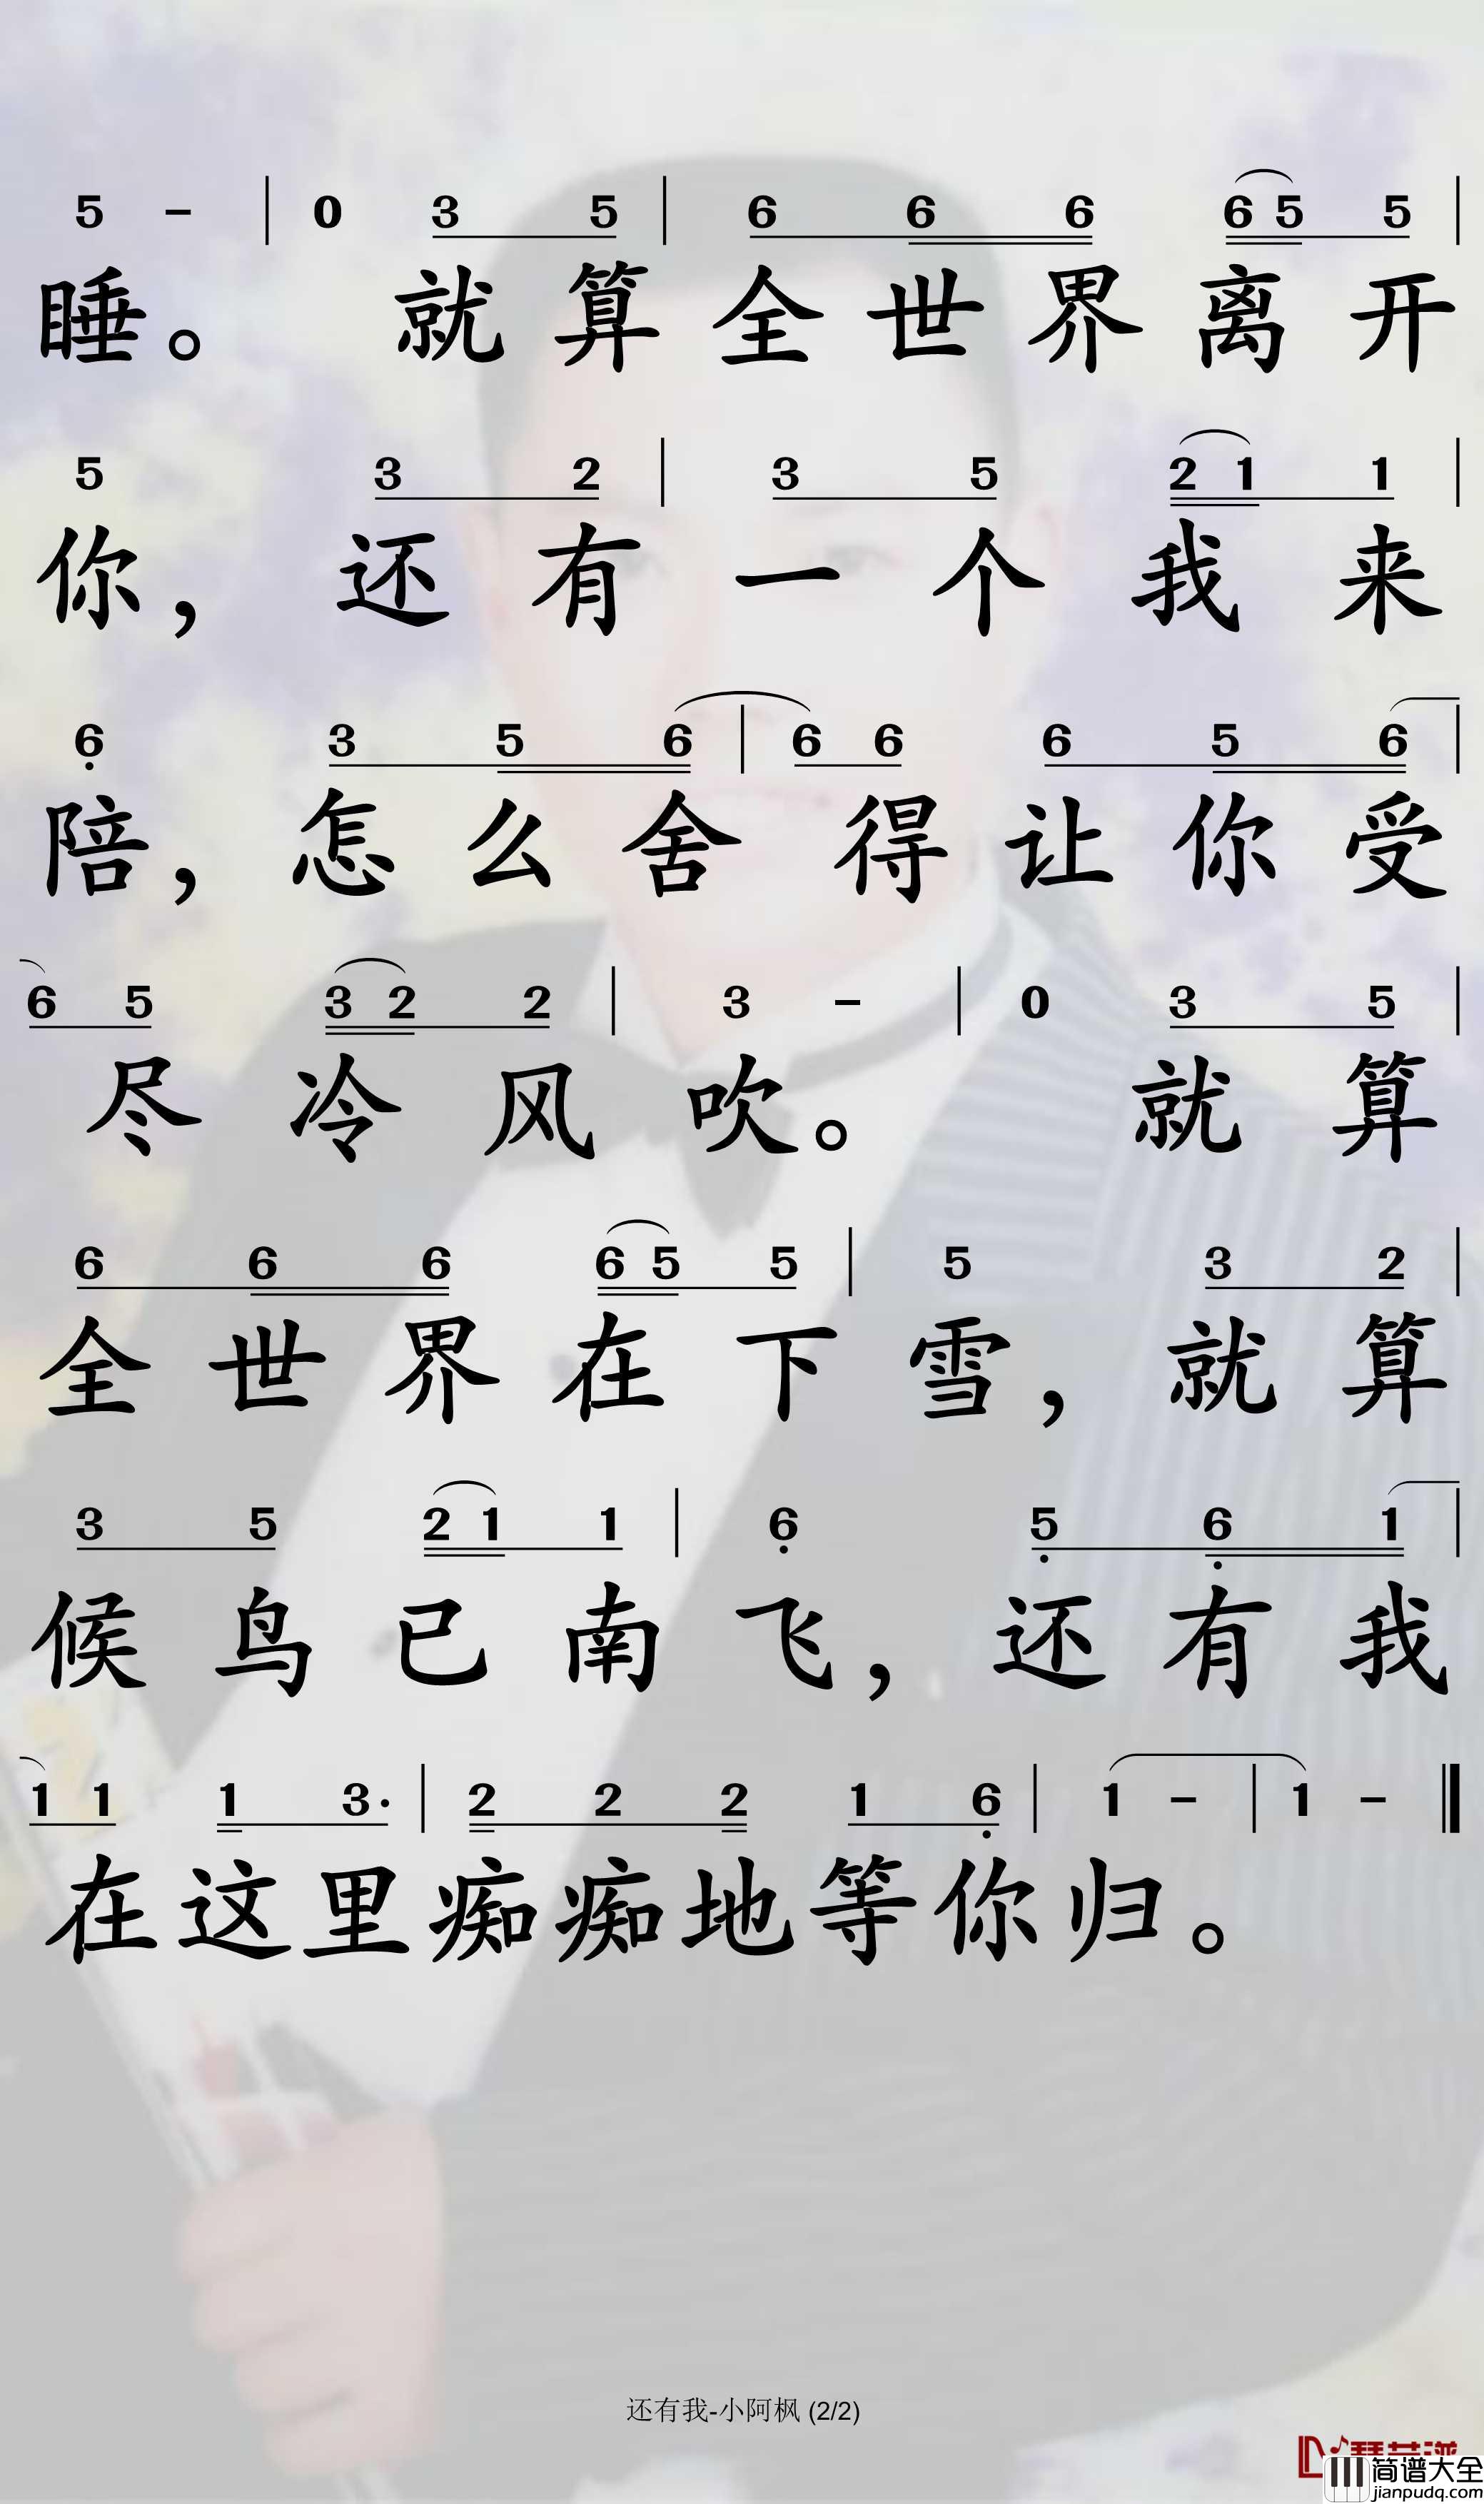 5 - | 0 3 5 | 6 6 6 6 5 5 |
睡。 就算全世界离开
5 3 2 | 3 5 2 1 1 |
你，还有一个我来
6 3 5 6 | 6 6 6 5 6 |
陪，怎么舍得让你受
6 5 3 2 2 | 3 - | 0 3 5 |
尽冷风吹。 就算
6 6 6 6 5 5 | 5 3 2 |
全世界在下雪，就算
3 5 2 1 1 | 6 5 6 1 |
候鸟已南飞，还有我
1 1 1 3· | 2 2 2 1 6 | 1 - | 1 - ‖
在这里痴痴地等你归。
还有我-小阿枫 (2/2)
简谱大全
jianpudq.com